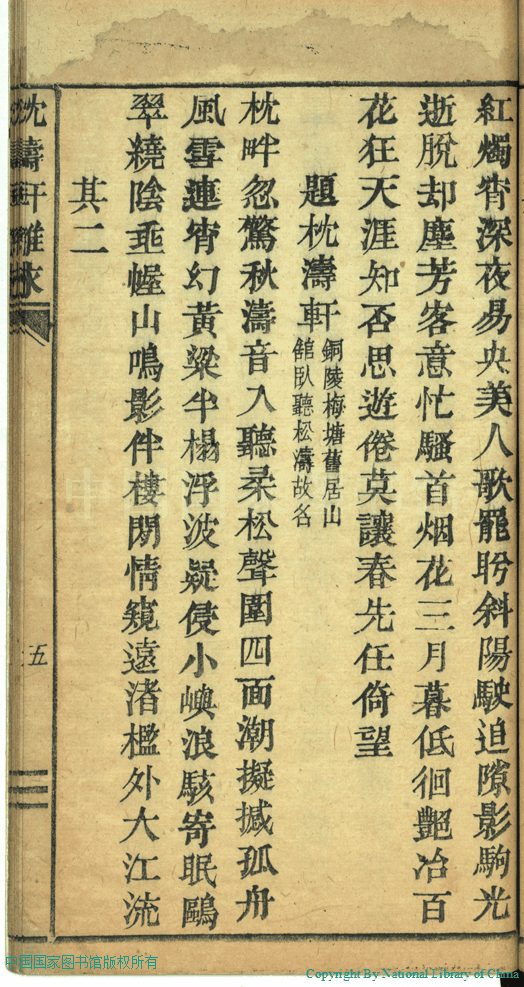 紅燭宵深夜易央美人歌罷盻斜陽駛追隙影駒光
逝脫却塵芳客意忙騷首烟花三月暮低徊艷冶百
花狂天涯知否思遊倦莫讓春先任倚望
題枕濤軒
銅陵梅塘舊居山
館臥聽松濤故名
枕畔忽驚秋濤音入聽柔松聲圍四面潮擬撼孤舟
風雪連宵幻黃粱半榻浮波疑侵小嶼浪駭寄眠鷗
翠繞陰垂幄山鳴影伴樓閑情窺遠渚檻外大江流
其二
枕濤軒雜
五
中国国家图书馆版权所有
Copyright By National Library of China